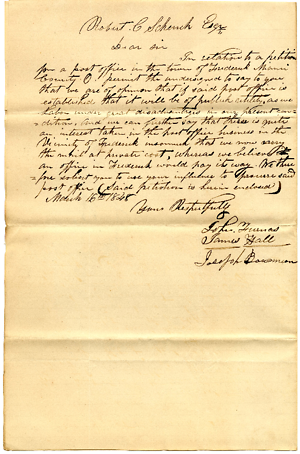 Robert C Schenck Esqr
Dear sir
In relation to a petition
for a post office in the town of Frederick Miami
County O. permit the undersigned to say to you
that we are of opinion that if said post office is
established that it will be of publick utility, as we
labor under great disadvantage in our present con-
dition, And we can further say that there is quite
an interest taken in the post office business in the
Vicinity of Frederick insomuch that we now carry
the mail at private cost, whereas we believe that
an office in Frederick would pay its way. We there
fore solicit you to use your influence to procure said
post office (Said petition is herein enclosed)
March 16th 1848
Yours Respectfully
John Furnas
James Hall
Joseph Bowman